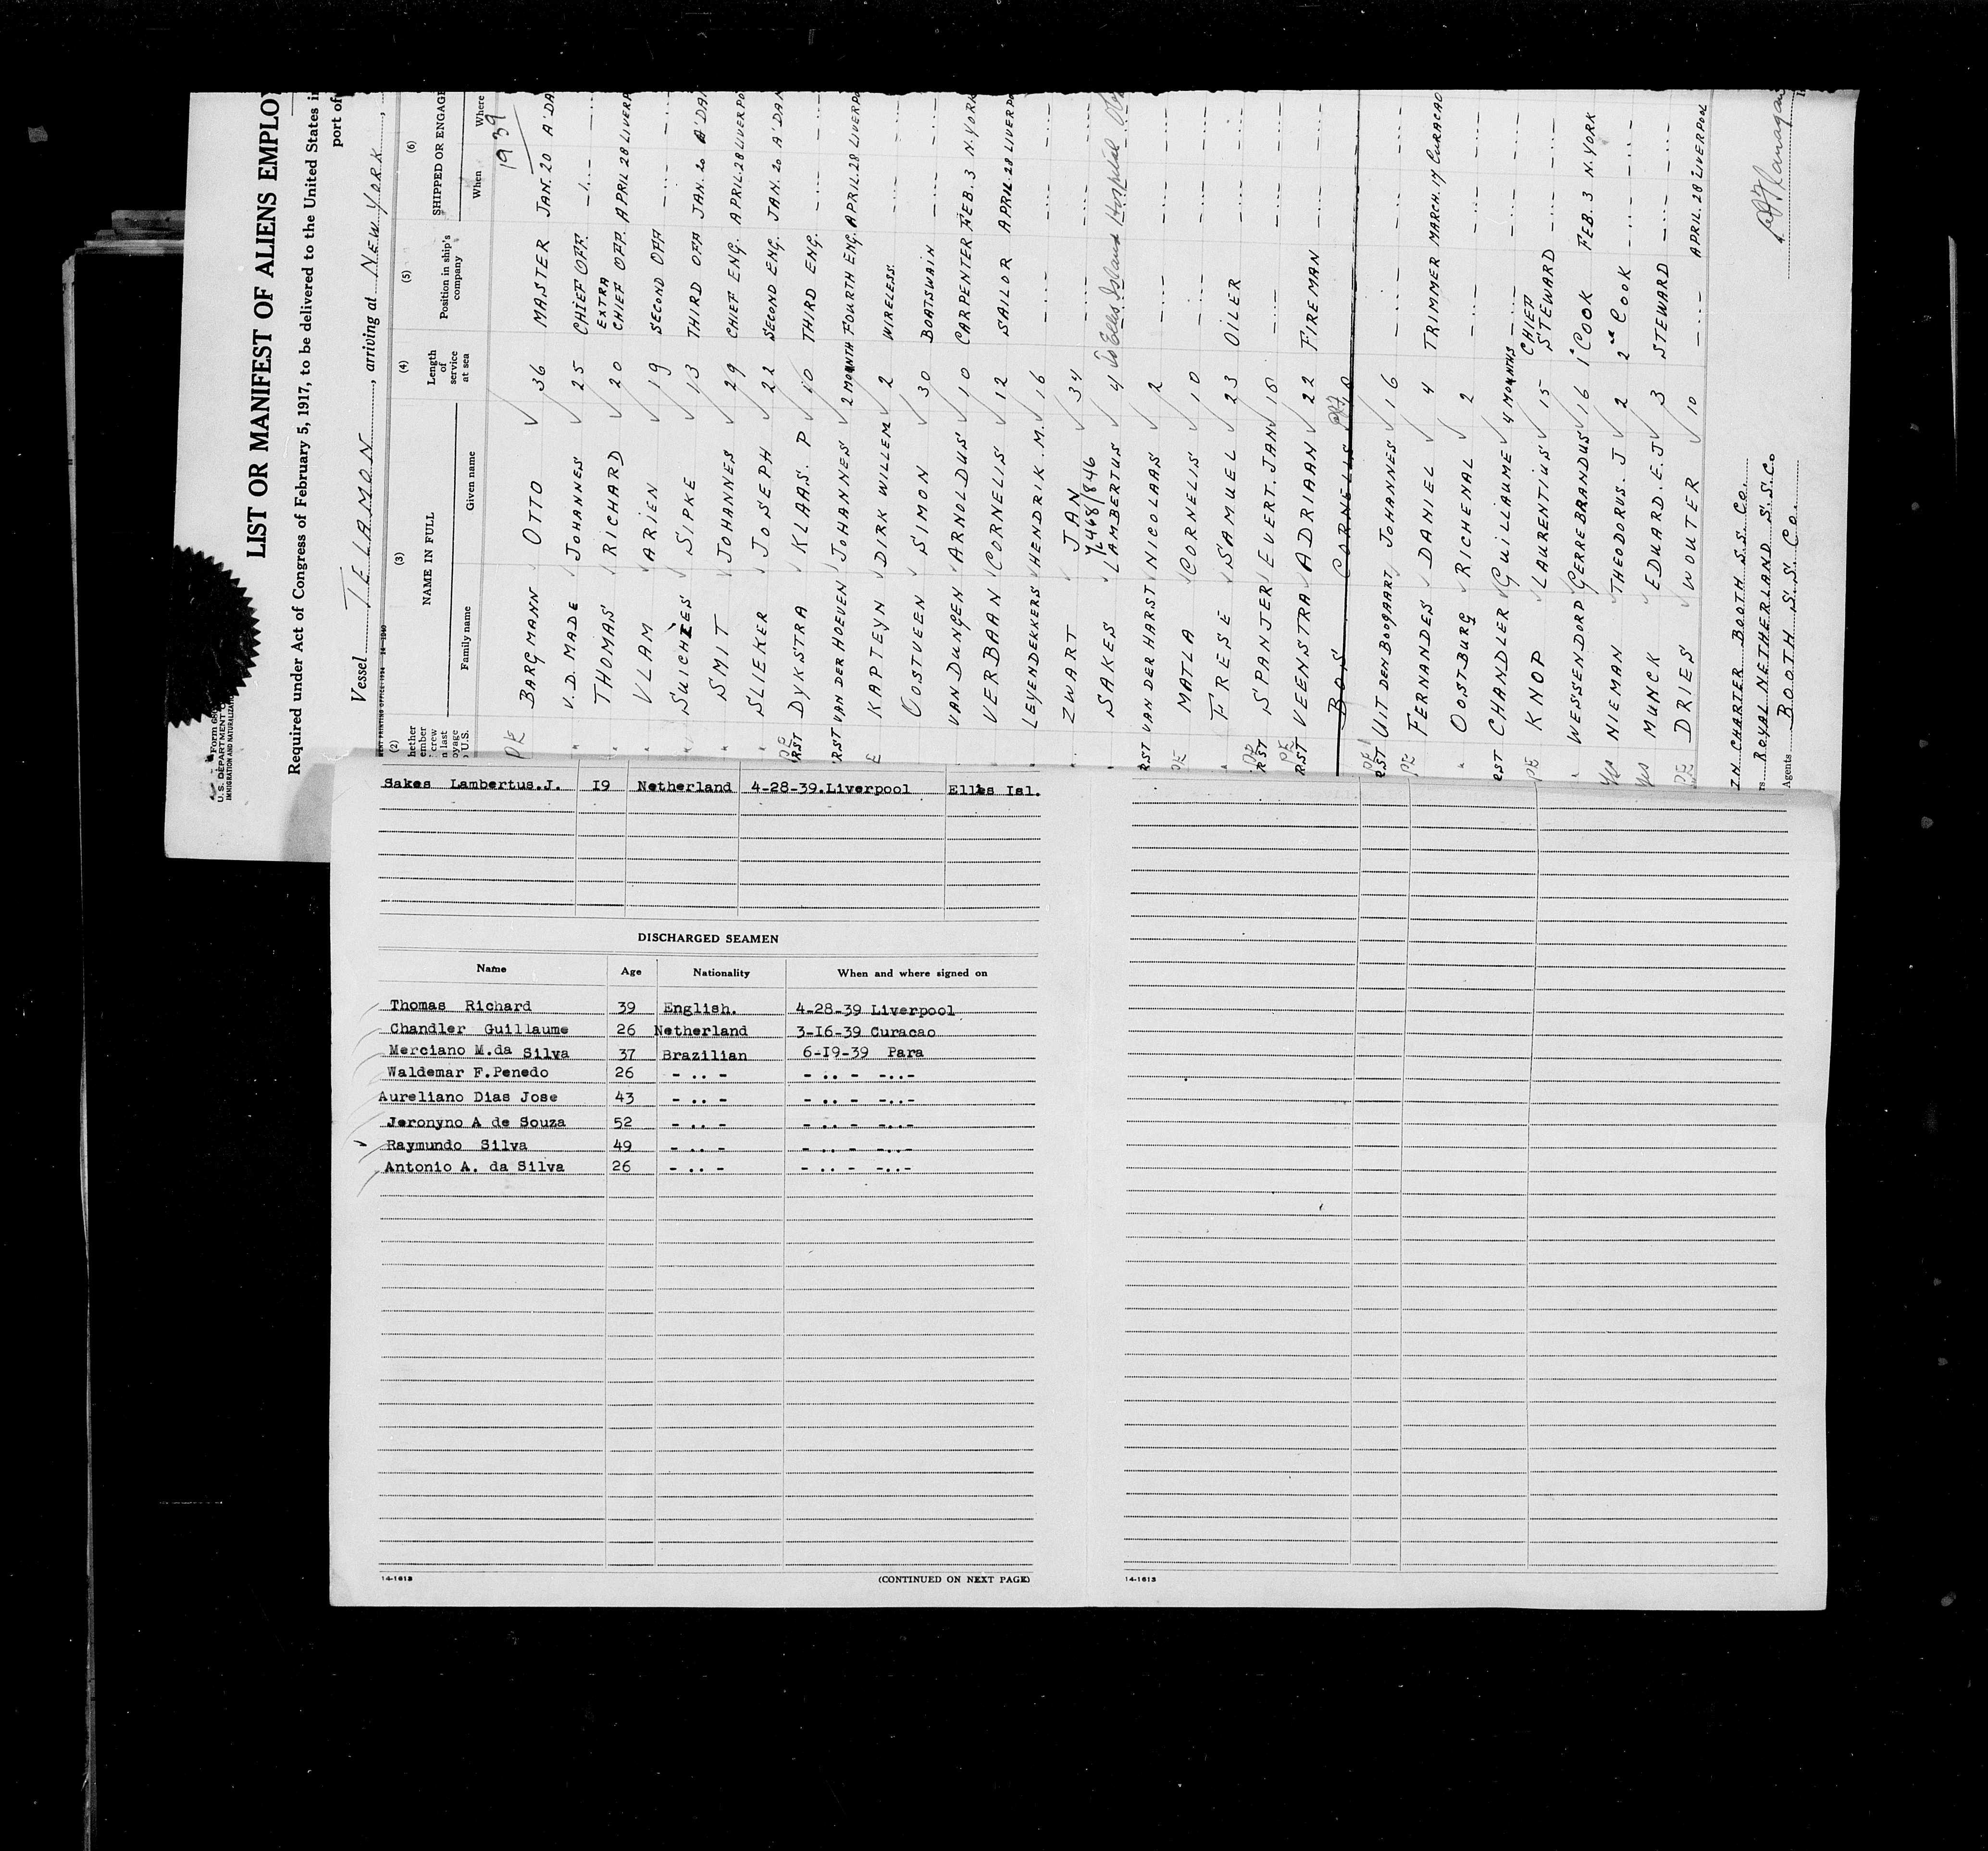 Form 680
U.S. DEPARTMENT
IMMIGRATION AND NATURALIZA
LIST OR MANIFEST OF ALIENS EMPLOY
Required under Act of Congress of February 5, 1917, to be delivered to the United States i
port of
Vessel TELAMON, arriving at NEW YORK,
(2) (3) (4) (5) (6)
hether ember crew n last oyage U.S. NAME IN FULL Length of service at sea Position in ship's company SHIPPED OR ENGAGE
Family name Given name When Where
1939
PE BARGMANN OTTO 36 MASTER JAN. 20 A'DA
" V.D. MADE JOHANNES 25 CHIEF OFF. - ... -
" THOMAS RICHARD 20 EXTRA CHIEF OFF. APRIL 28 LIVERP
" VLAM ARIEN 19 SECOND OFF - ... -
" SUICHIES SIPKE 13 THIRD OFF JAN. 20 A'DA
" SMIT JOHANNES 29 CHIEF ENG. APRIL. 28 LIVERPO
" SLIEKER JOSEPH 22 SECOND ENG. JAN. 20 A'DAM
PE RST DYKSTRA KLAAS. P 10 THIRD ENG. - ... -
RST VAN DER HOEVEN JOHANNES 2 MONTH FOURTH ENG. APRIL. 28 LIVERPO
E KAPTEYN DIRK WILLEM 2 WIRELESS. - ... -
" OOSTVEEN SIMON 30 BOATSWAIN - ... -
" VAN DUNGEN ARNOLDUS 10 CARPENTER FEB. 3 N. YORK
" VERBAAN CORNELIS 12 SAILOR APRIL. 28 LIVERPO
" LEYENDEKKERS HENDRIK. M. 16 - ... -
" ZWART JAN 34 - ... -
" SAKES LAMBERTUS 4 To Ellis Island Hospital
RST VAN DER HARST NICOLAAS 2 - ... -
PE MATLA CORNELIS 10 - ... -
" FRESE SAMUEL 23 OILER - ... -
PE RST SPANJER EVERT. JAN 18 - ... -
PE RST VEENSTRA ADRIAAN 22 FIREMAN - ... -
BOS CORNELIS
PE RST UIT DEN BOOGAART JOHANNES 16 - ... -
PE FERNANDES DANIEL 4 TRIMMER MARCH. 17 CURACAO
" OOSTBURG RICHENAL 2 - ... -
RST CHANDLER GUILLIAUME 4 MONTHS - ... -
PE KNOP LAURENTIUS 15 CHIEF STEWARD - ... -
" WESSENDORD GERREBRANDUS 16 1e COOK FEB. 3 N. YORK
Yes NIEMAN THEODORUS. J 2 2de COOK - ... -
Yes MUNCK EDUARD. E. J 3 STEWARD - ... -
PE DRIES WOUTER 10 - ... - APRIL. 28 LIVERPOOL
I.N CHARTER BOOTH S.S. Co.
rs ROYAL NETHERLAND S.S. Co
Agents BOOTH S.S. Co.
Sakes Lambertus.J. I9 Netherland 4-28-39.Liverpool Ellis Isl.
DISCHARGED SEAMEN
Name Age Nationality When and where signed on
Thomas Richard 39 English. 4-28-39 Liverpool
Chandler Guillaume 26 Netherland 3-I6-39 Curacao
Merciano M.da Silva 37 Brazilian 6-I9-39 Para
Waldemar F.Penedo 26 - .. - - .. - -..-
Aureliano Dias Jose 43 - .. - - .. - -..-
Jeronyno A de Souza 52 - .. - - .. - -..-
Raymundo Silva 49 - .. - - .. - -..-
Antonio A. da Silva 26 - .. - - .. - -..-
14-1613 (CONTINUED ON NEXT PAGE)
14-1613